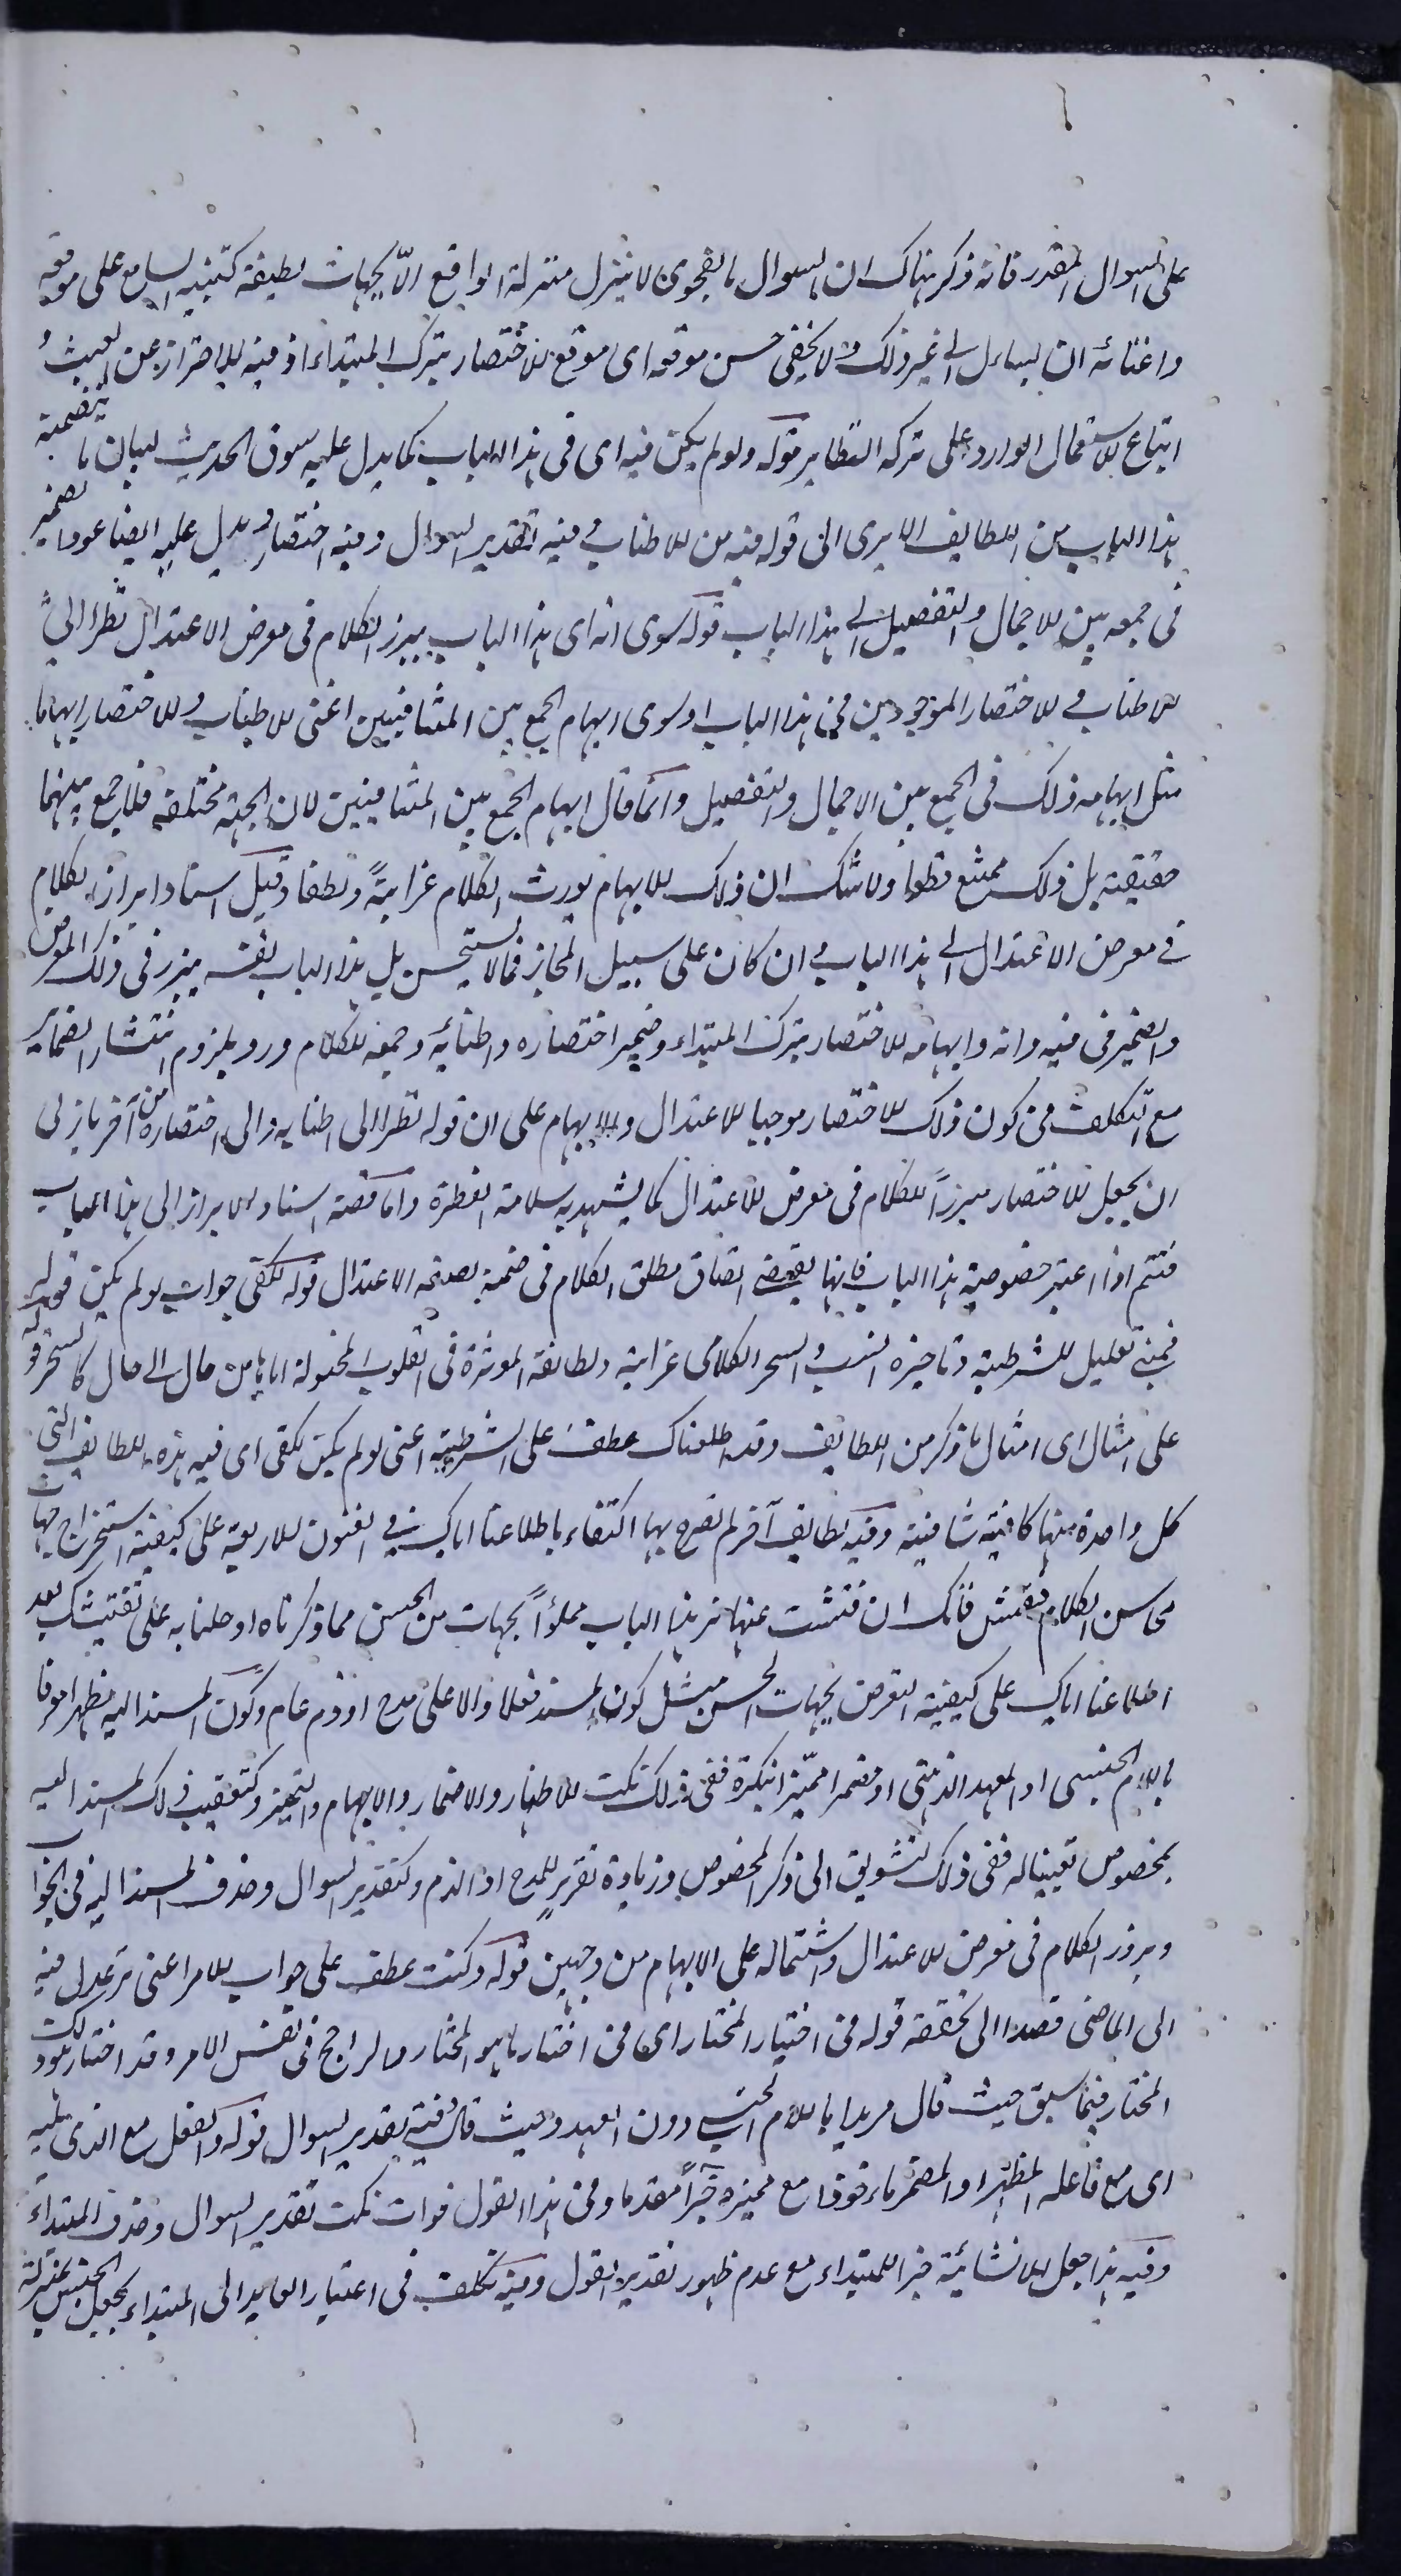 على السوال المقدر فانه ذكر هناك ان السوال بالفحوى لا ينزل منزلة الواقع الا بجهات لطيفة كتنبيه السامع على موقعه
واغنائه ان يسأل الى غير ذلك ولا يخفى حسن موقعه اى موقع الاختصار بترك المبتداء اذ فيه الاحتراز عن العبث و
اتباع الاستعمال الوارد على تركه النظاير قوله ولو لم يكن فيه اى فى هذا الباب كما يدل عليه سوق الحديث لبيان ما يتضمنه
هذا الباب من اللطايف الا يرى الى قوله فيه من الاطناب وفيه تقدير السوال وفيه اختصار ويدل عليه ايضا عود الضمير
فى جمعه بين الاجمال والتفصيل الى هذا الباب قوله سوى انه اى هذا الباب يبرز الكلام فى معرض الاعتدال نظرا الى
الاطناب والاختصار الموجودين فى هذا الباب او سوى ايهام الجمع بين المتنافيين اعنى الاطناب والاختصار ايهاما
مثل ايهامه ذلك فى الجمع بين الاجمال والتفصيل وانما قال ايهام الجمع بين المتنافيين لان الجهة مختلفة فلا جمع بينهما
حقيقة بل ذلك ممتنع قطعا ولا شك ان ذلك الايهام يورث الكلام غرابة ولطفا وقيل اسناد ابراز الكلام
فى معرض الاعتدال الى هذا الباب وان كان على سبيل المجاز فمما لا يستحسن بل هذا الباب نفسه يبرز فى ذلك المعرض
والضمير فى فيه وانه وايهامه للاختصار بترك المبتداء وضمير اختصاره واطنابه وجمعه للكلام ورد بلزوم انتشار الضماير
مع التكلف فى كون ذلك الاختصار موجبا للاعتدال والايهام على ان قوله نظرا الى اطنابه والى اختصاره من آخر يأبى
ان يجعل الاختصار مبرزا للكلام فى معرض الاعتدال كما يشهد به سلامة الفطرة واما قصة اسناد الابراز الى هذا الباب
فتتم اذا اعتبر خصوصية هذا الباب فانها يقتضى اتصاف مطلق الكلام فى ضمنه بصفة الاعتدال قوله لكفى جواب لو لم يكن قوله
تعليل للشرطية السحر الكلامى غرابة ولطائفه المؤثرة فى القلوب المحولة اياها من حال الى حال كالسحر قوله
على امثال اى امثال ما ذكر من اللطايف وقد اطلعناك عطف على الشرطية اعنى لو لم يكن لكفى اى فيه هذه اللطايف التى
كل واحدة منها كافية شافية وفيه لطايف آخر لم نصرح بها اكتفاء باطلاعنا اياك فى الفنون الاربعة على كيفية استخراج جهات
محاسن الكلام ففتش فانك ان فتشت عنها تر هذا الباب مملوأ بجهات من الحسن مما ذكرناه او حلنا به على تفتيشك بعد
اطلاعنا اياك على كيفية التعرض لجهات الحسن مثل كون المسند فعلا دالا على مدح او ذم عام وكون المسند اليه مظهرا معرفا
باللام الجنسى او العهد الذهنى او مضمرا مميزا بنكرة ففى ذلك نكت الاظهار والاضمار والابهام والتمييز وكتعقيب ذلك المسند اليه
بمخصوص تعيينا له ففى ذلك تشويق الى ذكر المخصوص وزيادة تقرير للمدح او الذم وكتقدير السوال وحذف المسند اليه فى الجواب
وبروز الكلام فى معرض الاعتدال واشتماله على الايهام من وجهين قوله وكنت عطف على جواب الامر اعنى تر عدل فيه
الى الماضى قصدا الى تحققه قوله فى اختيار المختار اى فى اختيار ما هو المختار والراجح فى نفس الامر وقد اختار السكاكى
المختار فيما سبق حيث قال مريدا باللام الجنس دون العهد وحيث قال وفيه تقدير السوال قوله والفعل مع الذى يليه
اى مع فاعله المظهر او المضمر مع مميزه خبرا مقدما وفى هذا القول فوات نكت تقدير السوال وحذف المبتداء
وفيه هذا جعل الانشائية خبرا للمبتداء مع عدم ظهور تقدير القول وفيه تكلف فى اعتبار العايد الى المبتداء بجعل الجنس بمنزلة